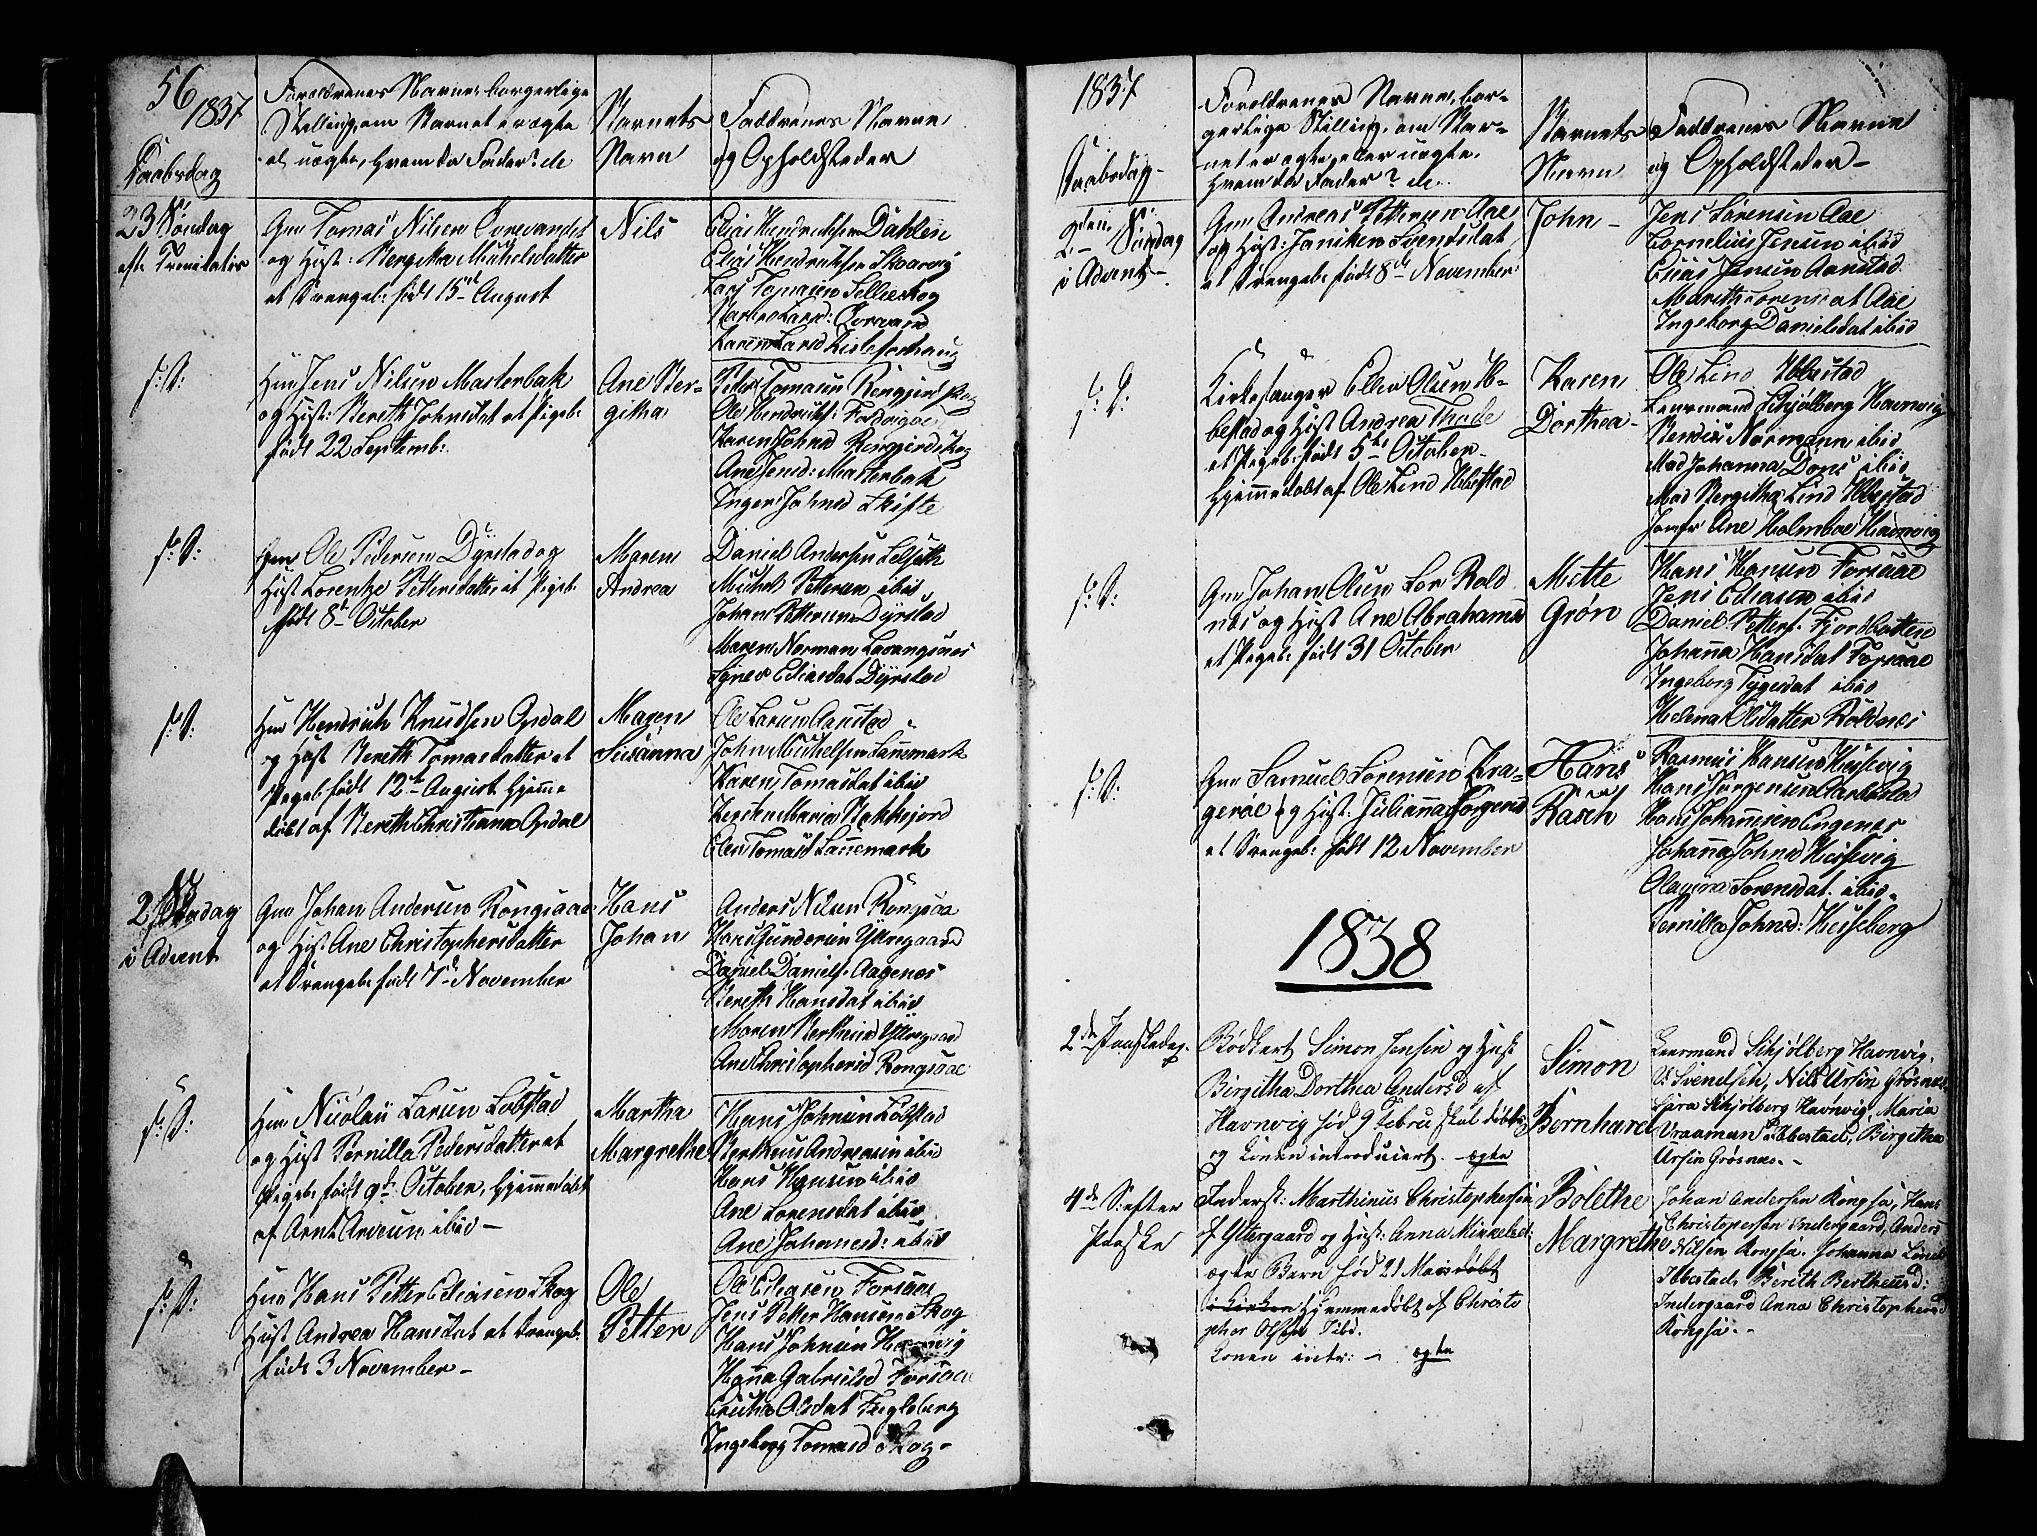 56
1837
Daabsdag
Forældrenes Navne, borgerlige
Stilling, om Barnet er ægte
el. uægte, hvem da Fader? de
Barnets
Navn
Faddrenes Navne
og Opholdsteder
23 Søndag
eft. Trenitatis
Gm Tomas Nilsen
og Hust: Bergitha Mikkelsdatter
et Drengeb: født 15de August
Nils
Elias Hendrichsen Dahlen
Elias Hendrichsen Skarvig
Lars Tomasen Sellieskog
s: D:
Hm Jens Nilsen Masterbak
og Hust: Bereth Johnsdat et Pigeb:
født 22 Septemb:
Ane Ber-
githa
Peder Tomasen
Ole Hendrichs:
Karen Johnsd
Ane Jensd: Masterbak
Inger Johnsd Skifte
s: D:
Gm Ole Pedersen Dyrstad og
Hust Lorentze Pettersdatter et Pigeb:
født 8de October
Maren
Andrea
Daniel Andersen
Mickel Pettersen ibid
Johan Pettersen Dyrstad
Maren Norman Lavangsnes
Agnes Eliasdat Dyrstad
s: D:
Hm Hendrich Knudsen Opdal
og Hust Bereth Tomasdatter et
Pigeb: født 12te August hjemme
døbt af Bereth Christiana Opdal
Maren
Susanna
Ole Larsen Aanstad
John Mickelsen Lannemark
Karen Tomasdat ibid
Maria
Elen Tomasd Lannemark
2 Søndag
i Advent
Gm Johan Andersen Rongsaae
og Hust Ane Christophersdatter
et Drengeb: født 7de November
Hans
Johan
Anders Nilsen Rongsaa
Hans Gundersen Yttregaard
Daniel Daniels: Aagenes
Bereth Hansdat ibid
Maren Berthius Yttregaard
Ane Christophersd Rongsaae
s: D:
Hm Nicolaii Larsen Løbstad
og Hust Pernilla Pedersdatter et
Pigeb: født 9de October, hjemmedøbt
af Arnt Arnsen ibid –
Martha
Margrethe
Hans Johnsen Løbstad
Bertheus Andreasen ibid
Hans Hansen ibid
Ane Sørensdat ibid
Ane Johannesd: ibid
s: D:
Hm Hans Petter Eliasen Skog
Hust Andrea Hansdat et Drengeb:
født 3 November –
Ole
Petter
Ole Eliasen Forsaae
Jens Petter Hansen Skog
Hans Johnsen Havnvig
Hanna Gabrielsd Forsaae
Olsdat
Ingeborg Tomasd Skog –
1837
Daabsdag –
Foreldrenes Navne, bor-
gerlige Stilling, om Bar-
net er ægte, eller uægte,
hvem da Fader? de.
Barnets
Navn
Faddrenes Navne
og Opholdsteder –
2– Søndag
i Advent –
Gm Andreas Pettersen Aae
og Hust: Janiken Svendsdat
et Drengeb: født 8de November:
John –
Jens Sørensen Aae
Cornelius Jensen ibid
Elias Jensen Aanstad
Mareth Sørensdat Aae
Ingeborg Danielsdat ibid
s: D:
Kirkesanger Ellen Olsen Ib-
bestad og Hust Andrea Thode
et Pigeb: født 5te October –
hjemmedøbt af Ole Lind Ibbestad
Karen
Dorthea –
Ole Lind Ibbestad
Lensmand Schjølberg Havnvig
Normann ibid
Mad Johanna Döns ibid
Mad Bergitha Lind Ibbestad
Jomfr Ane Holmboe Havnvig
s: D:
Gm Johan Olsen Rold
næs og Hust Ane Abrahamsd
et Pigeb: født 31 October
Mette
Grøn
Hans Hansen Forsaae
Jens Eliasen ibid
Daniel Petters: Fjordbotten
Johanna Hansdat Forsaae
Ingeborg Tygesdat ibid
Helena Olsdatter Roldnes
s: D:
Gm Samuel Sørensen Kra-
gerøe og Hust: Julianna Jørgensd
et Drengeb: født 12 November
Hans
Rasch
Rasmus Hansen Hessevig
Hans Jørgensen
Hans Johannesen Engenes
Johanna Johnsd Hessevig
Olagina Sørensdat ibid –
Pernilla Johnsd: Hesseberg
1838
2de Paaskedag.
Bødkert Simon Jensen og Hust
Birgitha Dorthea Andersd af
Havnvig fød 9 Febru døbt
og Konen introduciert. – ægte
Simon
Bernhard
Lensmand Schjølberg Havnvig,
O: Svendsen, Nils Ursin Grøsnes
Sara Schjølberg Havnvig, Maria
Vraaman Ibbestad, Birgitha
Ursin Grøsnes. –
4de S: efter
Paaske
Inderst: Marthinus Christophersen
af Yttergaard og Hust: Anna Mikkelsd:
ægte Barn fød 21 Mars døbt
i Kirken hjemmedøbt af Christo
pher Olsen Ibbd.
Konen intr: – ægte
Bolethe
Margrethe
Johan Andersen Rongså, Hans
Christophersen Indergaard, Anders
Nilsen Rongså. Johanna Linds
Ibbestad, Bereth Bertheusd:
Indergaard Anna Christophersd
Rongså. –